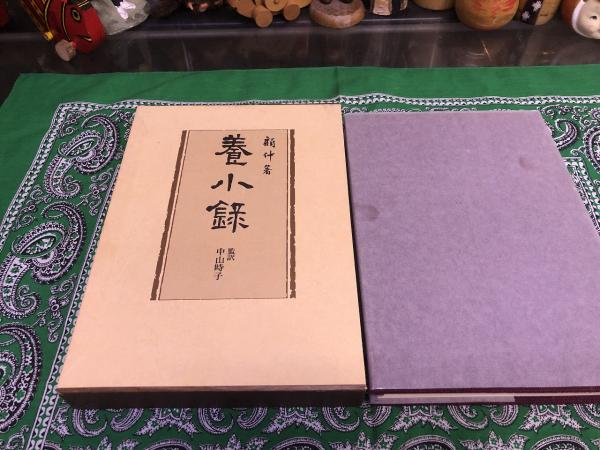 顧仲著
養小錄
監訳
中山時子